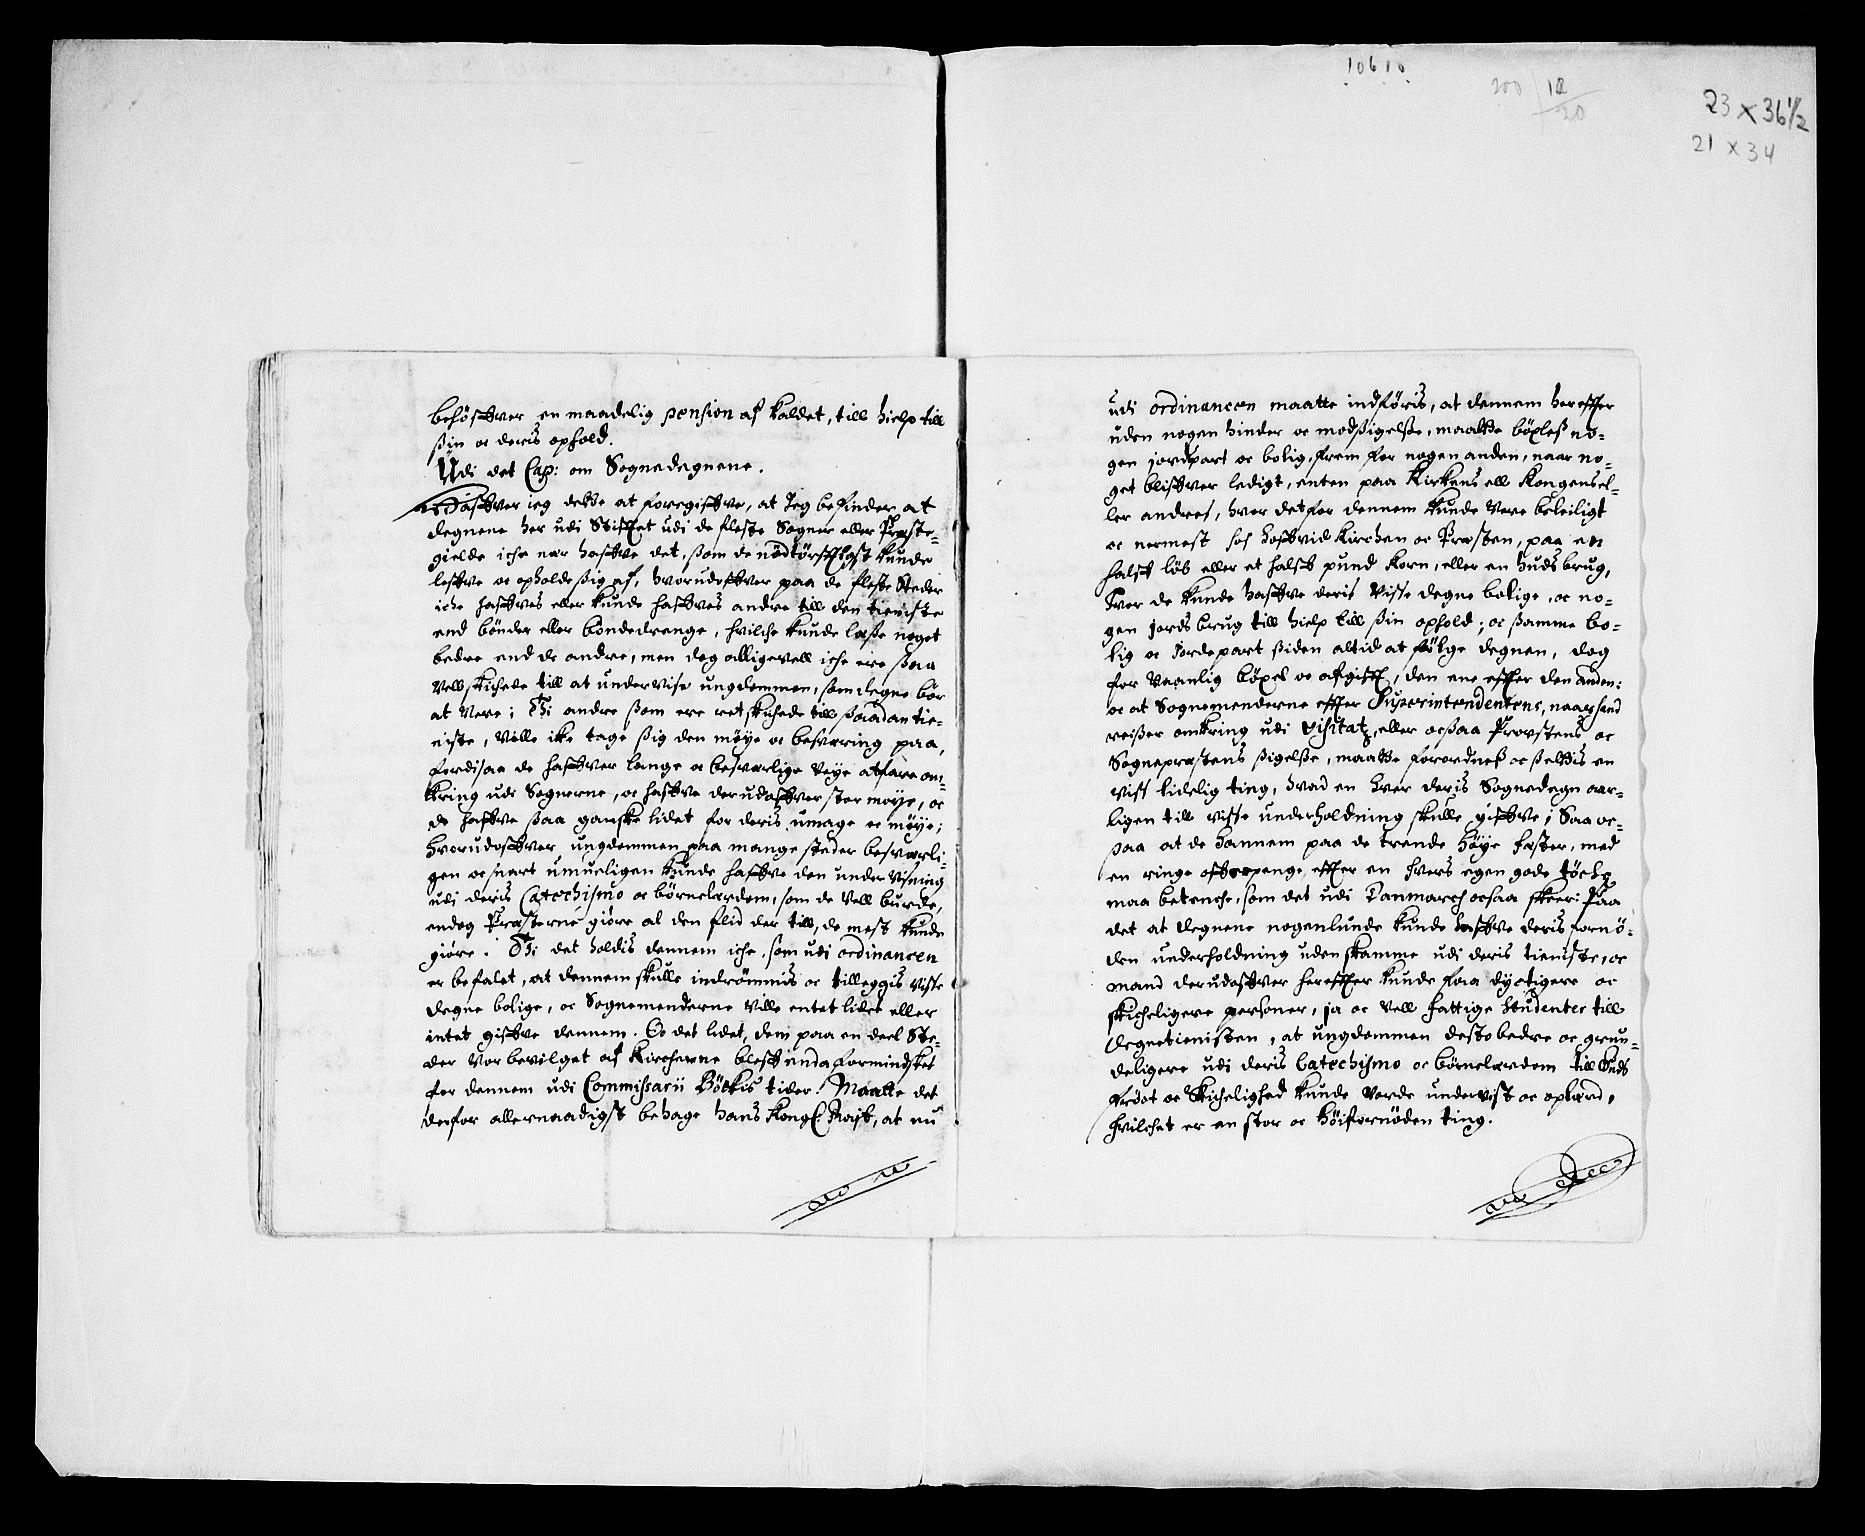 behöffver en maadelig pension af kaldet, till hielp till
sin oc deris ophold.
Udi det Cap: om Sognedegnene.
Haffver ieg dette at foregiffve, at Jeg befinder at
degnene her udi Stifftet udi de fleste Sogner eller Præste-
gielde iche nær haffve det, som de nödtörffteligst kunde
leffve oc opholde sig af, hvorudoffver paa de fleste Steder
iche haffves eller kunde haffves andre till den tieniste
end bönder eller bondedrenge, hvilche kunde læse noget
bedre end de andre, men dog alligevell iche ere saa
Vell skichede till at undervise ungdommen, som degne bör
at Vere; Thi andre som ere ret skichede till saadan tie-
niste, Ville ikke tage sig den möye oc besværing paa,
fordi saa de haffver lange oc besværlige Veye at fare om-
kring udi Sognerne, oc haffve derudoffver stor möye, oc
de haffve saa ganske lidet for deris umage oc möye;
hvorudoffver ungdommen paa mange steder besværli-
gen oc snart umueligen kunde haffve den underVisning
udi deris Catechismo oc börnelærdom, som de Vell burde,
endog Præsterne giöre al den flid der till, de mest kunde
giöre. Thi det holdis dennem iche, som udi ordinancen
er befalet, at dennem skulle indrömmis oc tilleggis Visse
degne bolige, oc Sognemenderne Ville entet lidet eller
intet giffve dennem. Oc det lidet, dem paa en deel Ste-
der Vor bevilget af Kircherne bleff enda formindsket
for dennem udi Commissarii Böckis tider! Maatte det
derfor allernaadigst behage hans Kongl. Majst, at nu
udi ordinancen maatte indföris, at dennem hereffter
uden nogen hinder oc modsigelse, maatte böxles no-
gen jordpart oc bolig, frem for nogen anden, naar no-
get bliffver ledigt, enten paa Kirkens ell Kongens el-
ler andres, hvor det for dennem kunde Vere beleiligt
oc nermest hos hosvid Kirchen oc Præsten, paa en
halff löb eller et halft pund Korn, eller en huds brug,
hvor de kunde haffve deris Visse degne bolige, oc no-
gen jords brug till hielp till sin ophold; oc samme bo-
lig oc Jordepart siden altid at fölge degnen, dog
for Vaanlig böxel oc afgifft, den ene effter den anden:
oc at Sognemenderne effter Superintendentens, naar hand
reiser omkring udi Visitatz, eller ocsaa Provstens oc
Sogneprestens sigelse, maatte forordnes oc settis en
viss lidelig ting, hvad en hver deris Sognedegn aar-
ligen till visse underholdning skulle giffve; Saa oc-
saa at de hannem paa de trende höye fæster, med
en ringe offerpenge effter en hvers egen gode töche
maa betenche, som det udi Danmarch ocsaa skeer: Paa
det at degnene nogenlunde kunde haffve deris fornö-
den underholdning uden skamme udi deris tieniste, oc
mand derudoffver hereffter kunde faa dyctigere oc
skicheligere personer, ja oc Vell fattige Studenter till
degnetienisten, at ungdommen desto bedre oc grun-
deligere udi deris Catechismo oc börnelærdom till Guds
fröct oc Skichelighed kunde Vorde undervist oc oplærd,
hvilchet er en stor oc höifornöden ting.
10610
200 / 10
20
23 x 36 1/2
21 x 34